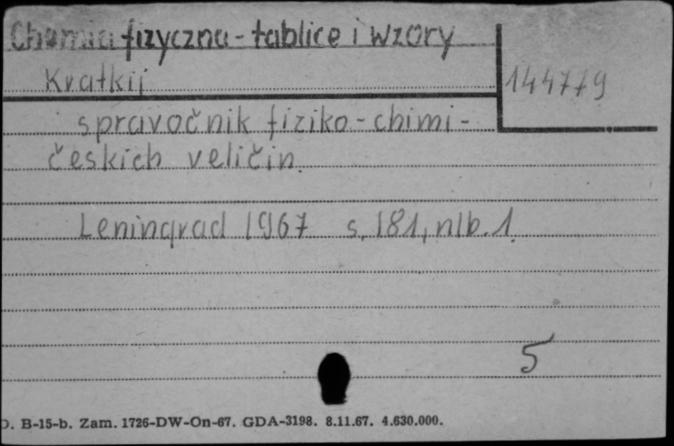 Chemia fizyczna - tablice i wzory
Kratkij
144779
spravočnik fiziko-chimi-
českich veličin.
Leningrad 1967 s. 181, nlb. 1.
5
D. B-15-b. Zam. 1726-DW-On-67. GDA-3198. 8.11.67. 4.630.000.